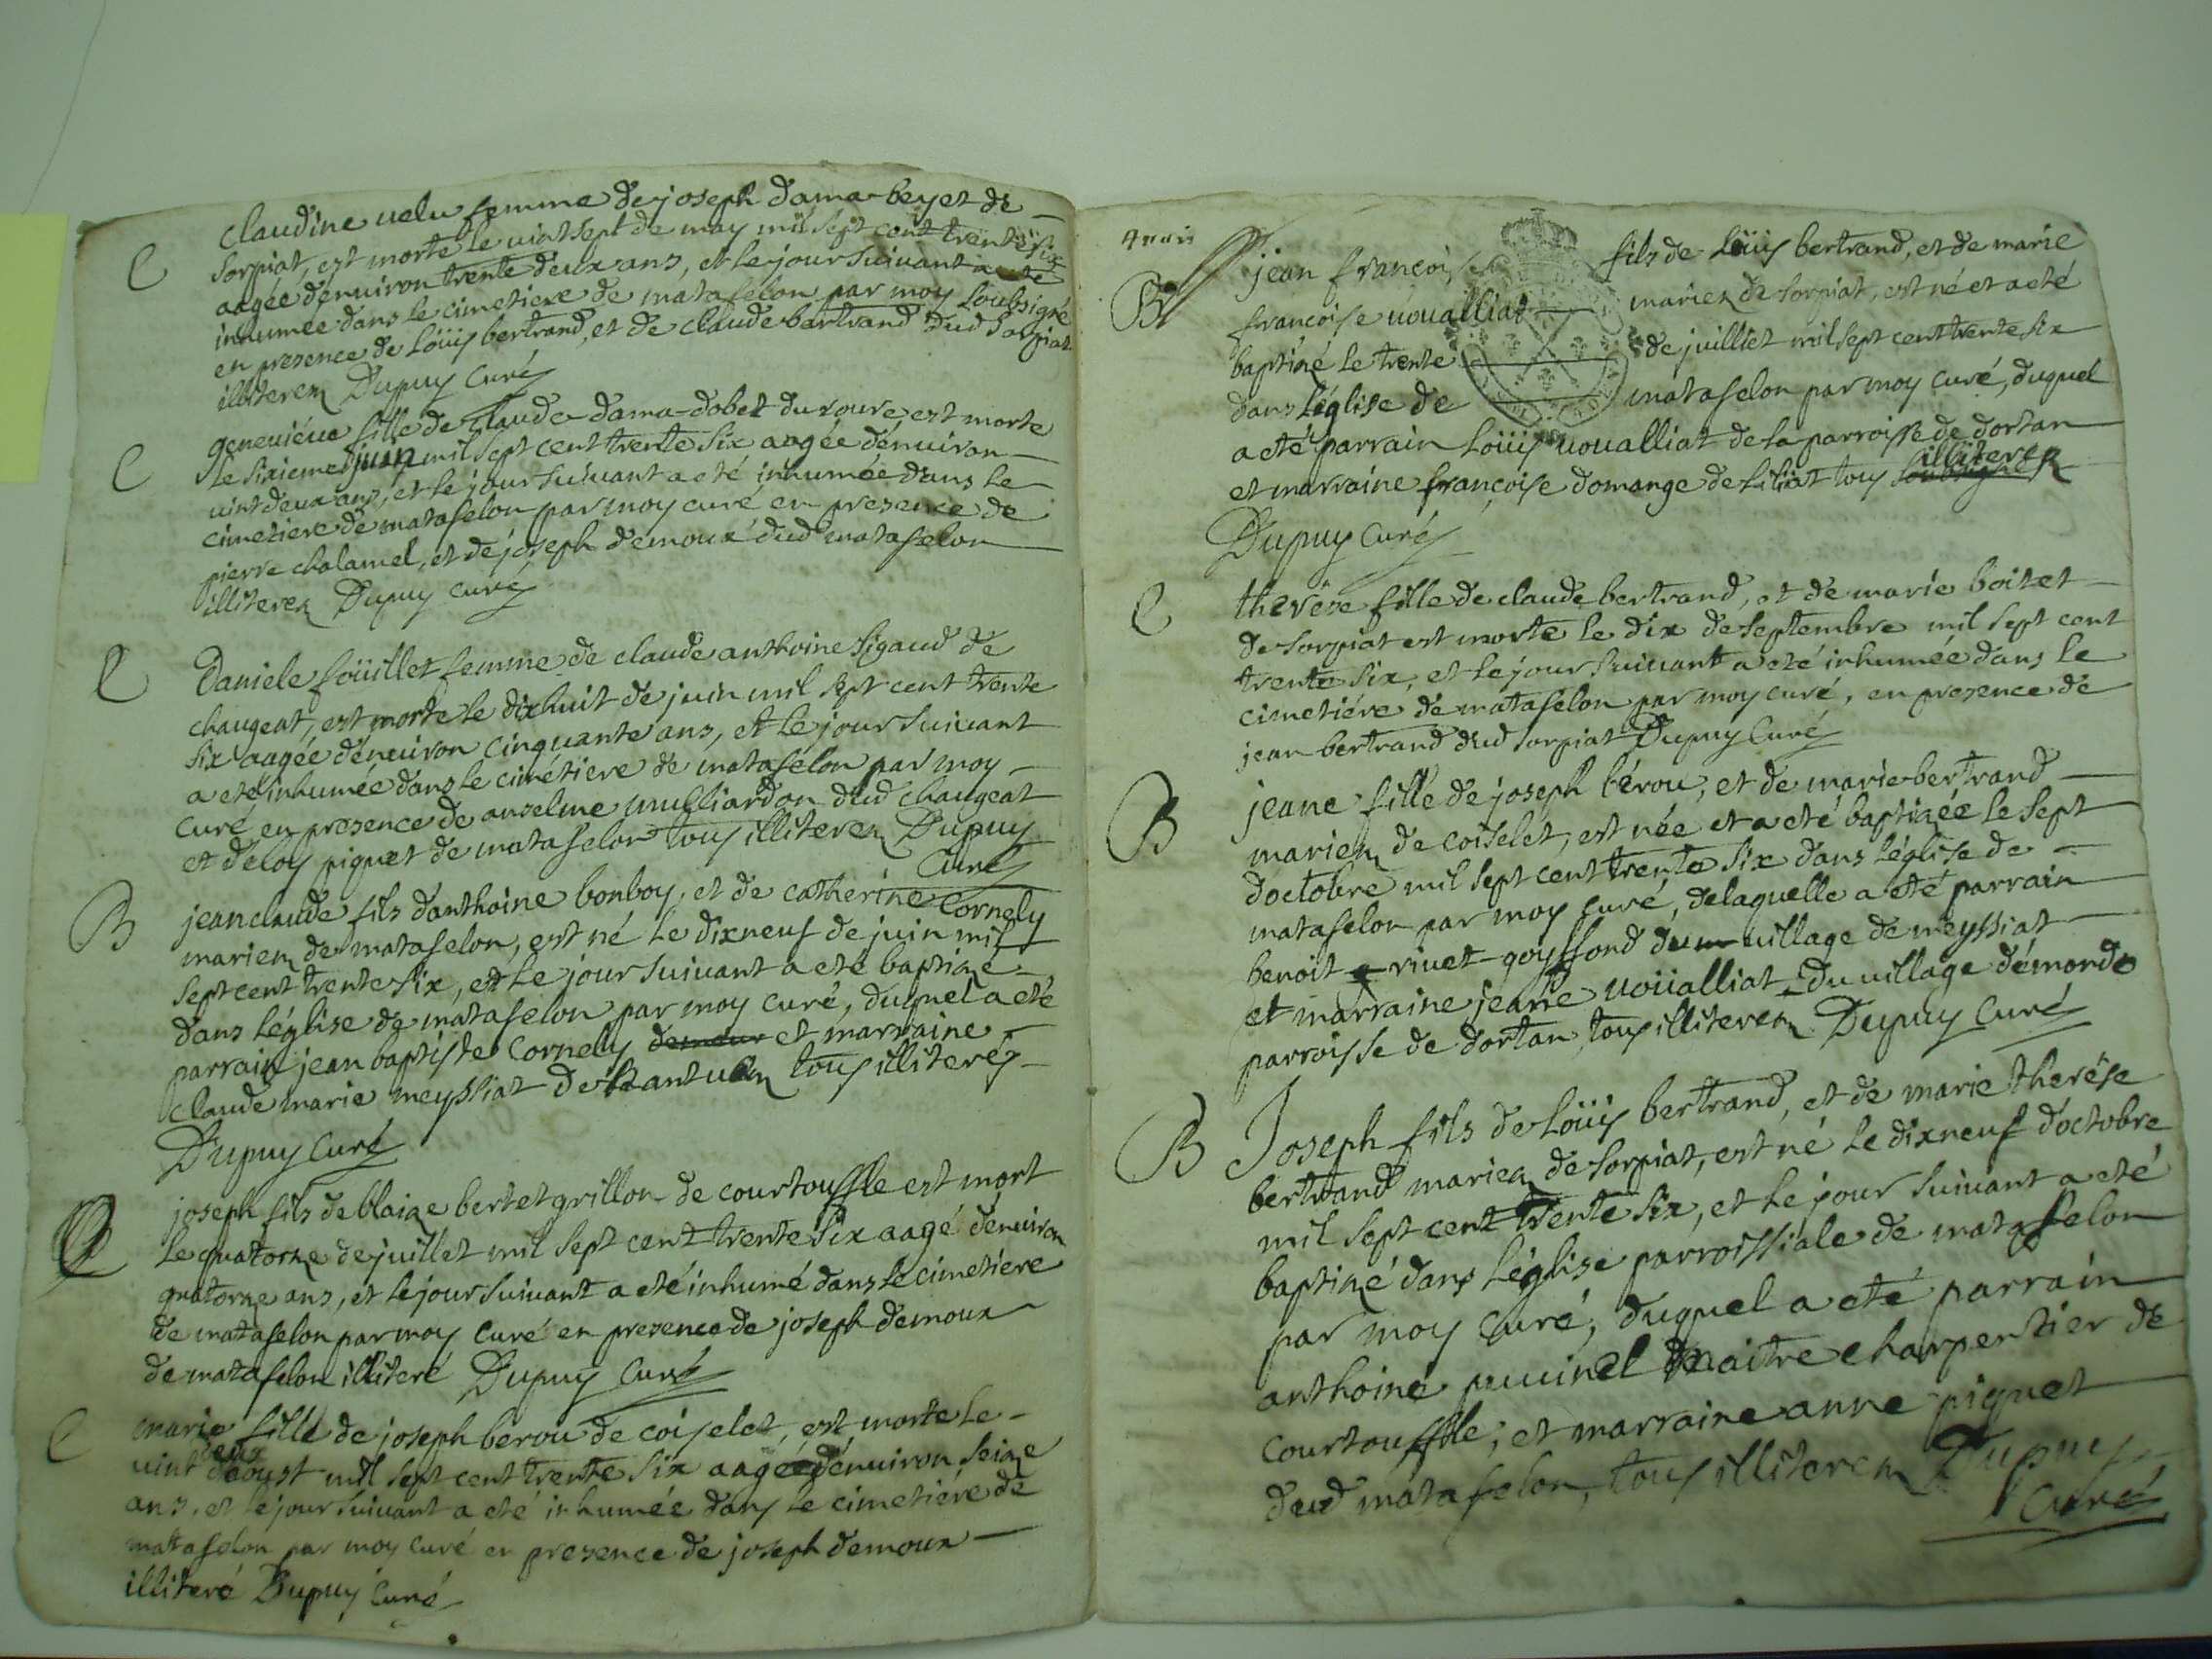 C
claudine uelu femme de joseph dama-beyet de
sorpiat, est morte le uint sept de may mil sept cent trente six
aagée d'enuiron trente deux ans, et le jour suiuant a eté
inhumée dans le cimetiere de matafelon par moy soubsigné
en presence de loüis bertrand, et de claude bertrand dud sorpiat
illiterez Dupuy Curé
C
geneuiéue fille de claude dama-dobet du roure, est morte
le sixieme juin mil sept cent trente six aagée d'enuiron
uint deux ans, et le jour suiuant a eté inhumée dans le
cimetiere de matafelon par moy curé en presence de
pierre chalamel, et de joseph demoux dud matafelon
illiterez Dupuy curé
C
Daniele foüillet femme de claude anthoine sigaud de
chaugeat, est morte le dixhuit de juin mil sept cent trente
six aagée d'enuiron cinquante ans, et le jour suiuant
a eté inhumée dans le cimétiere de matafelon par moy
curé en presence de anselme mulliardon dud chaugeat
et de loy piquet de matafelon tous illiterez Dupuy
Curé
B
jean claude fils d'anthoine bonboy, et de catherine Cornely
mariez de matafelon, est né le dixneuf de juin mil
sept cent trente six, et le jour suiuant a eté baptizé
dans l'église de matafelon par moy curé, duquel a eté
parrain jean baptiste Cornely demeur et marraine
claude marie meyssiat de tous illiterés
Dupuy Curé
C
joseph fils de blaize bertet grillon de courtouffle est mort
le quatorze de juillet mil sept cent trente six aagé d'enuiron
quatorze ans, et le jour suiuant a eté inhumé dans le cimetiere
de matafelon par moy curé en presence de joseph demoux
de matafelon illiteré Dupuy Curé
C
marie fille de joseph berou de coiselet, est morte le
uint deux
d'aoust mil sept cent trente six aagée d'enuiron seize
ans, et le jour suiuant a eté inhumée dans le cimetiére de
matafelon par moy curé en presence de joseph demoux
illiteré Dupuy Curé
B
jean françois fils de loüis bertrand, et de marie
françoise uoualliat mariez de sorpiat, est né et a eté
baptizé le trente de juilliet mil sept cent trente six
dans l'église de matafelon par moy curé, duquel
a eté parrain loüis uoualliat de la parroisse de dortan
illiterez
et marraine françoise domange de siliat tous soubsignez
Dupuy Curé
C
therése fille de claude bertrand, et de marie boitet
de sorpiat est morte le dix de septembre mil sept cent
trente six, et le jour suiuant a eté inhumée dans le
cimetiére de matafelon par moy curé, en presence de
jean bertrand dud sorpiat Dupuy Curé
B
jeane fille de joseph bérou, et de marie bertrand
mariez de coiselet, est née et a eté baptizée le sept
d'octobre mil sept cent trente six dans l'église de
matafelon par moy curé, de laquelle a eté parrain
benoit riuet goyffond du uillage de meyssiat
et marraine jeane uoüalliat du uillage d'émonde
parroisse de dortan, tous illiterez Dupuy Curé
B
Joseph fils de loüis bertrand, et de marie therése
bertrand mariez de sorpiat, est né le dixneuf d'octobre
mil sept cent trente six, et le jour suiuant a eté
baptizé dans l'église parroissiale de matafelon
par moy curé, duquel a eté parrain
anthoine maitre charpentier de
courtouffle, et marraine anne piquet
dud matafelon, tous illiterez Dupuy
Curé